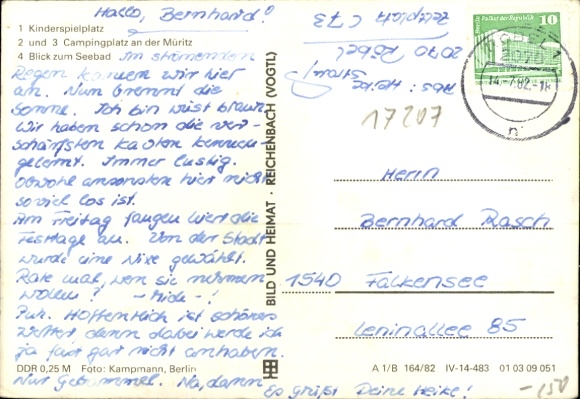 Hallo, Bernhard!
1 Kinderspielplatz
2 und 3 Campingplatz an der Müritz
4 Blick zum Seebad
Im strömenden
Regen kamen wir hier
an. Nun brennt die
Sonne. Ich bin wüst braun.
Wir haben schon die ver-
schärfsten Kanten kennen-
gelernt. Immer lustig.
Obwohl ansonsten hier nicht
so viel los ist.
Am Freitag fangen hier die
Festtage an. Von der Stadt
wurde eine Nixe gewählt.
Rate mal, wen sie nehmen
wollen?
Puh. Hoffentlich ist schönes
Wetter, denn dabei werde ich
ja fast gar nicht anhaben.
DDR 0,25 M Foto: Kampmann, Berlin
Nur Gebammel. Na, dann
Es grüßt Deine Heike!
BILD UND HEIMAT · REICHENBACH (VOGTL)
Abs: Heike
2070 Röbel
Zeltplatz C 73
17207
Berlin Palast der Republik 10
DDR
14.-7.82.-18
Herrn
Bernhard Rasch
1540 Falkensee
Leninallee 85
A 1/B 164/82 IV-14-483 01 03 09 051
-150